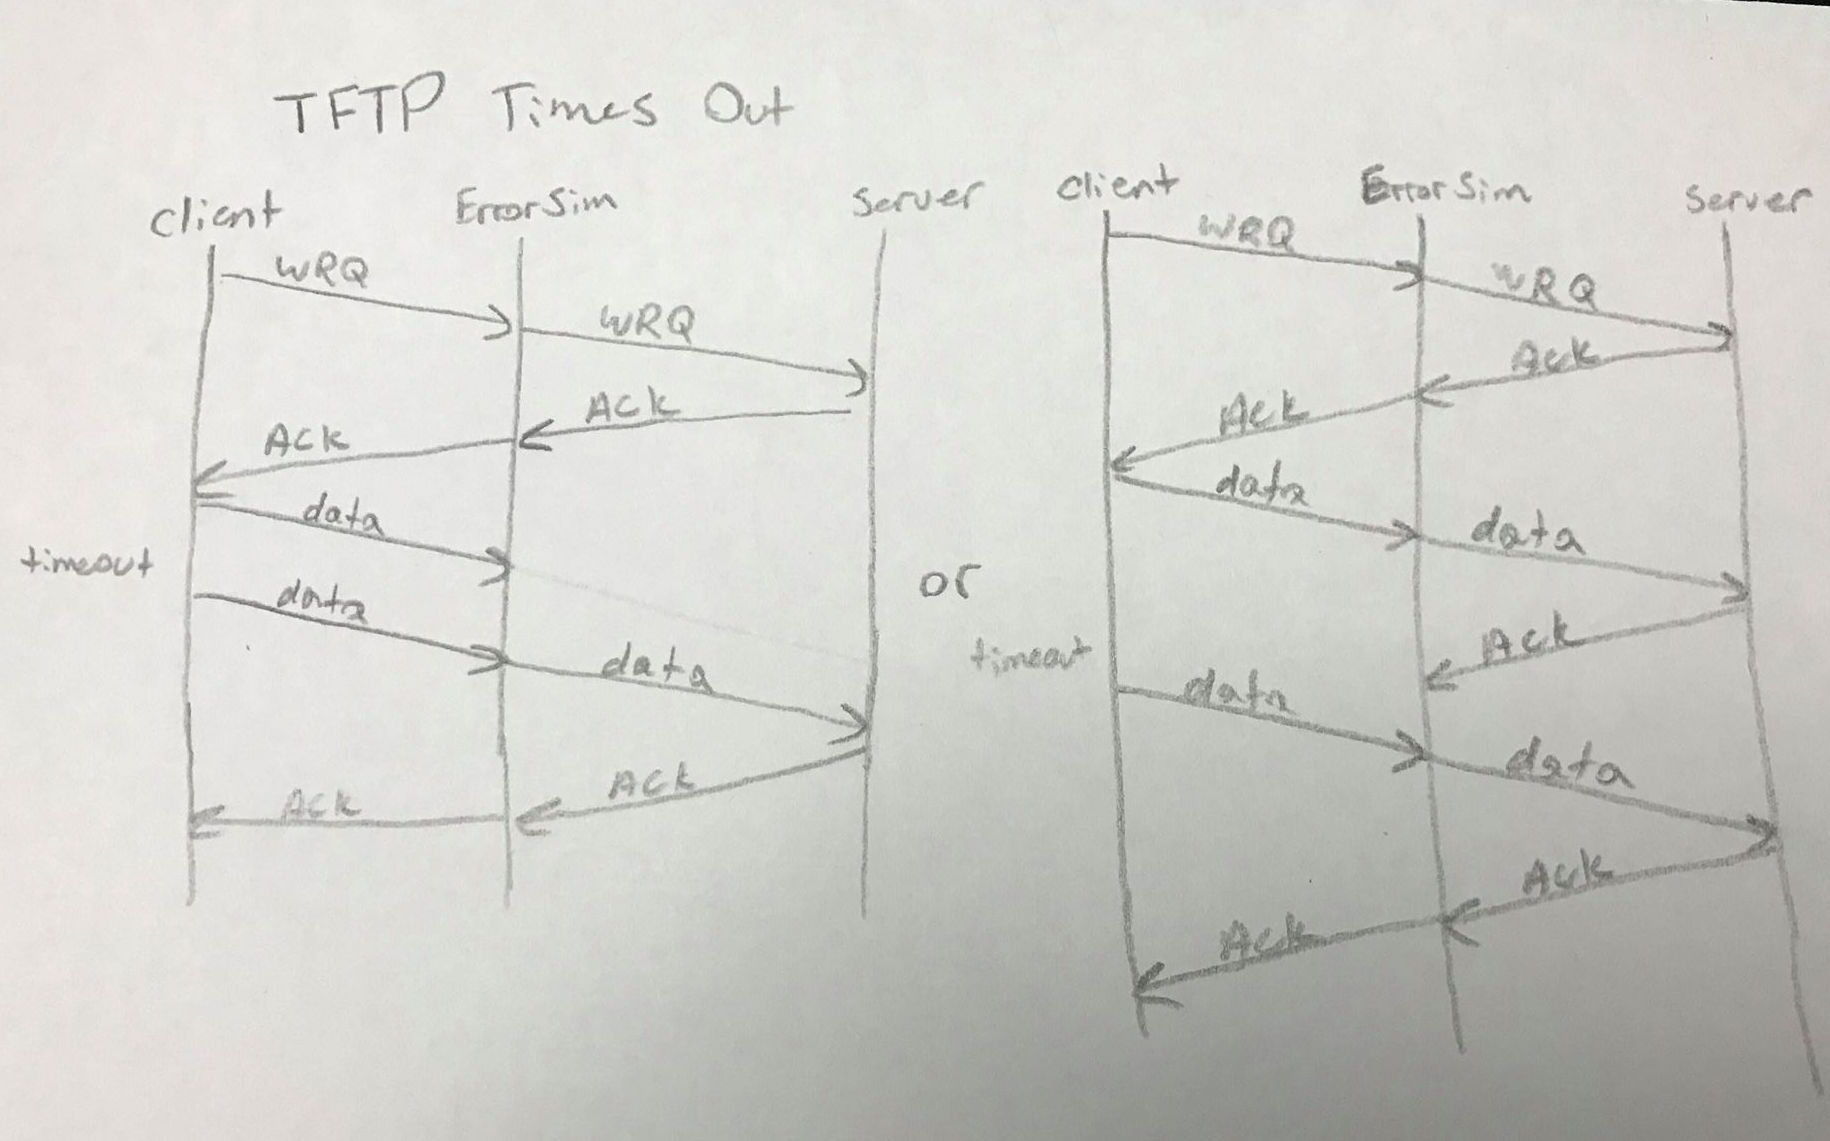 TFTP Times Out
client ErrorSim Server
WRQ
WRQ
Ack
Ack
data
timeout
data
data
Ack
Ack
or
client ErrorSim Server
WRQ
WRQ
Ack
Ack
data
data
Ack
timeout
data
data
Ack
Ack